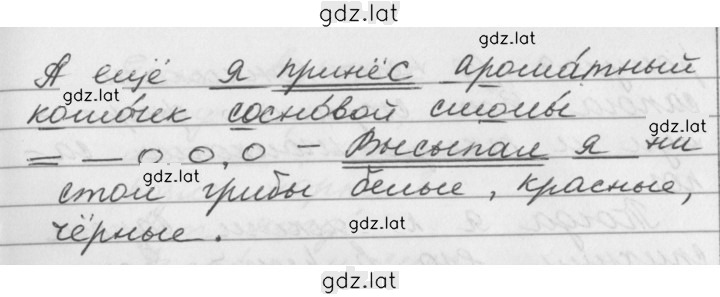 gdz.lat
gdz.lat
А ещё я принёс арома́тный
gdz.lat
комо́чек сосно́вой смолы́
gdz.lat
= — о о, о – Высыпал я на
gdz.lat
стол грибы белые, красные,
чёрные.
gdz.lat
gdz.lat